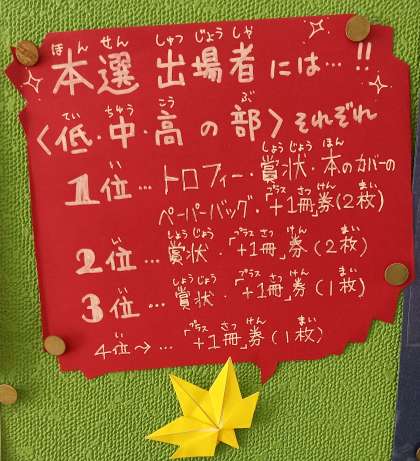 本選出場者には…!!
〈低・中・高の部〉それぞれ
1位…トロフィー・賞状・本のカバーの
ペーパーバッグ・「+1冊」券(2枚)
2位…賞状・「+1冊」券(2枚)
3位…賞状・「+1冊」券(1枚)
4位→…「+1冊」券(1枚)